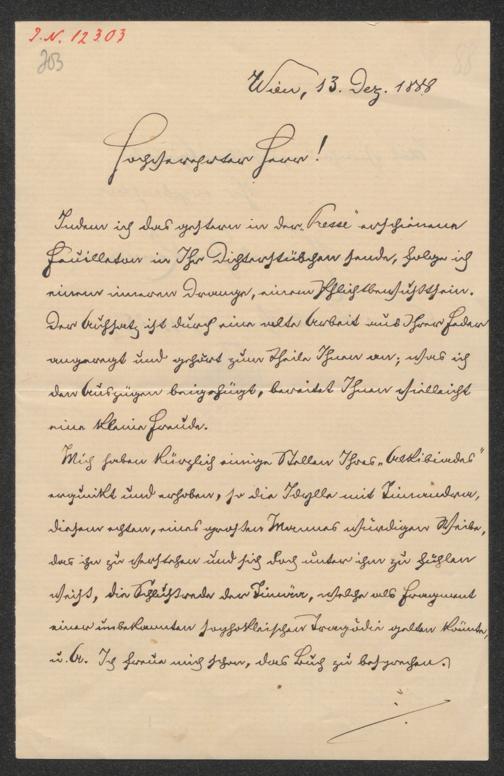 I.N. 12303
203
Wien, 13. Dez. 1888
Hochverehrter Herr!
Indem ich das gestern in der „Presse" erschienene
Feuilleton in Ihr Dichterstübchen sende, folge ich
einem inneren Drange, einem Pflichtbewußtsein.
Der Aufsatz ist durch eine alte Arbeit aus Ihrer Feder
angeregt und gehört zum Theile Ihnen an; was ich
den Auszügen beigefügt, bereitet Ihnen vielleicht
eine kleine Freude.
Mich haben kürzlich einige Stellen Ihres „Alkibiades"
erquikt und erhoben, so die Idylle mit Timandra,
diesem echten, eines großen Mannes würdigen Weibe,
das ihn zu verstehen und sich doch unter ihm zu fühlen
weiß, die Schlußrede der Timäa, welche als Fragment
einer unbekannten sophokleischen Tragödie gelten könnte,
u. A. Ich freue mich schon, das Buch zu besprechen.